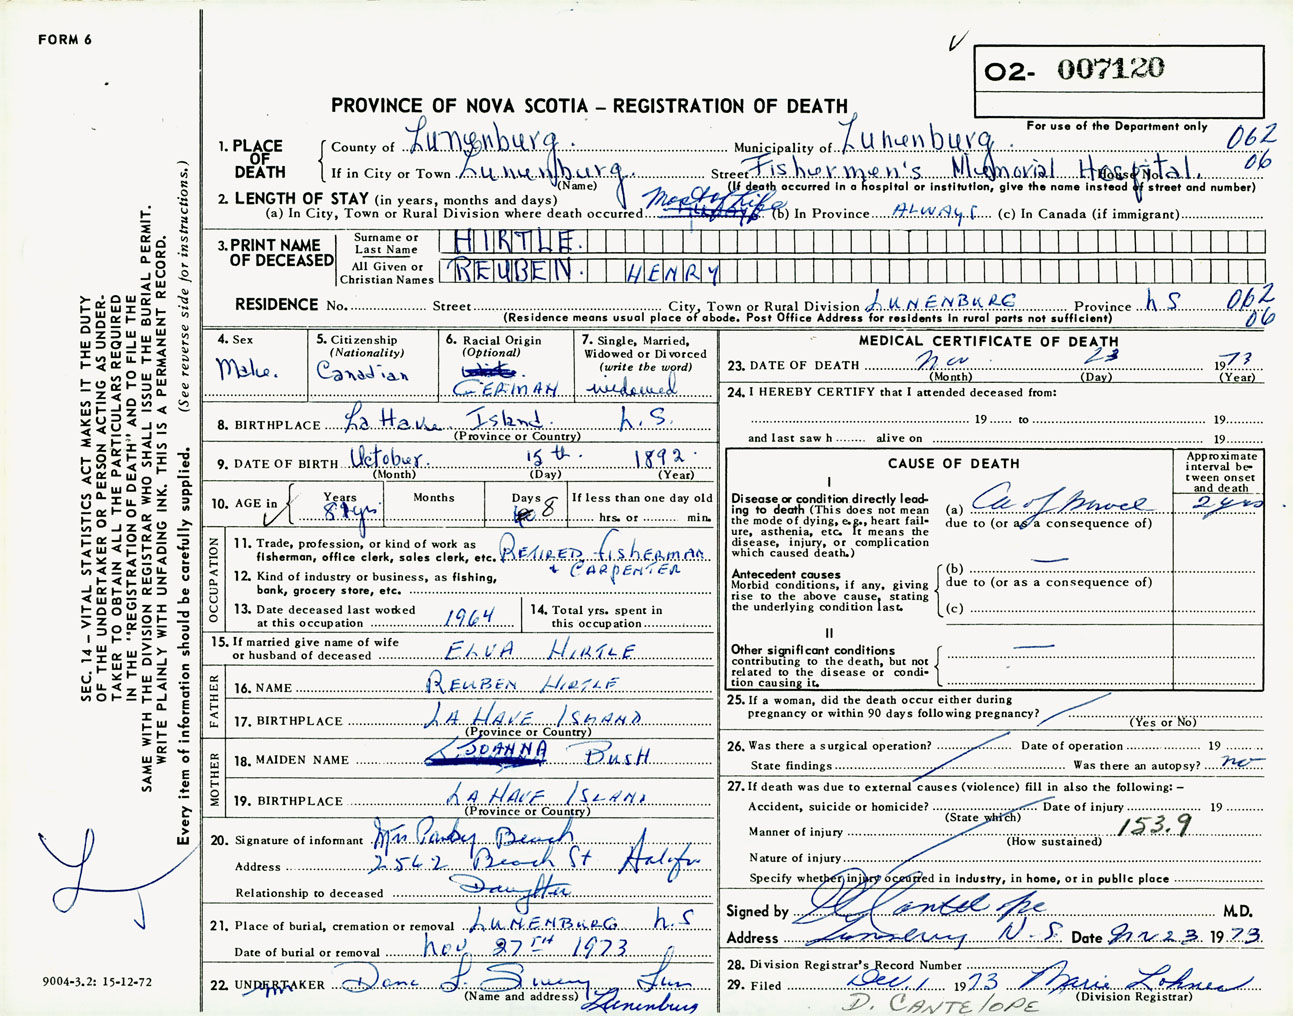 FORM 6
O2- 007120
PROVINCE OF NOVA SCOTIA – REGISTRATION OF DEATH
For use of the Department only
062
06
1. PLACE OF DEATH
County of Lunenburg. Municipality of Lunenburg.
If in City or Town Lunenburg. Street Fishermen's Memorial Hospital.
(Name) (If death occurred in a hospital or institution, give the name instead of street and number)
2. LENGTH OF STAY (in years, months and days)
(a) In City, Town or Rural Division where death occurred Most of Life (b) In Province ALWAYS (c) In Canada (if immigrant)
3. PRINT NAME OF DECEASED
Surname or Last Name HIRTLE.
All Given or Christian Names REUBEN. HENRY
RESIDENCE No. Street City, Town or Rural Division LUNENBURG Province N S 062
(Residence means usual place of abode. Post Office Address for residents in rural parts not sufficient) 06
4. Sex
Male.
5. Citizenship
(Nationality)
Canadian
6. Racial Origin
(Optional)
GERMAN
7. Single, Married,
Widowed or Divorced
(write the word)
widowed
8. BIRTHPLACE La Have Island. N.S.
(Province or Country)
9. DATE OF BIRTH October. 15th. 1892.
(Month) (Day) (Year)
10. AGE in
Years Months Days If less than one day old
81yrs 8 hrs. or min.
OCCUPATION
11. Trade, profession, or kind of work as
fisherman, office clerk, sales clerk, etc. RETIRED fisherman
+ CARPENTER
12. Kind of industry or business, as fishing,
bank, grocery store, etc.
13. Date deceased last worked
at this occupation 1964
14. Total yrs. spent in
this occupation
15. If married give name of wife
or husband of deceased ELVA HIRTLE
FATHER
16. NAME REUBEN HIRTLE
17. BIRTHPLACE LA HAVE ISLAND
(Province or Country)
MOTHER
18. MAIDEN NAME JOANNA BUSH
19. BIRTHPLACE LA HAVE ISLAND
(Province or Country)
20. Signature of informant Mrs Beach
Address 2562 Beach St Halifax
Relationship to deceased Daughter
21. Place of burial, cremation or removal LUNENBURG N.S
Date of burial or removal Nov. 27TH 1973
22. UNDERTAKER Dana L. Sweeny
(Name and address) Lunenburg
MEDICAL CERTIFICATE OF DEATH
23. DATE OF DEATH Nov 23 1973
(Month) (Day) (Year)
24. I HEREBY CERTIFY that I attended deceased from:
19 to 19
and last saw h alive on 19
CAUSE OF DEATH
Approximate
interval be-
tween onset
and death
I
Disease or condition directly lead-
ing to death (This does not mean
the mode of dying, e.g., heart fail-
ure, asthenia, etc. It means the
disease, injury, or complication
which caused death.)
(a) Ca of bowel 2 yrs
due to (or as a consequence of)
Antecedent causes
Morbid conditions, if any, giving
rise to the above cause, stating
the underlying condition last.
(b) —
due to (or as a consequence of)
(c)
II
Other significant conditions
contributing to the death, but not
related to the disease or condi-
tion causing it.
25. If a woman, did the death occur either during
pregnancy or within 90 days following pregnancy?
(Yes or No)
26. Was there a surgical operation? Date of operation 19
State findings Was there an autopsy? no
27. If death was due to external causes (violence) fill in also the following: –
Accident, suicide or homicide? Date of injury 19
(State which)
Manner of injury 153.9
(How sustained)
Nature of injury
Specify whether injury occurred in industry, in home, or in public place
Signed by Cantelope M.D.
Address Lunenburg N.S. Date Nov 23 1973
28. Division Registrar's Record Number
29. Filed Dec. 1 1973 Marie Lohnes
(Division Registrar)
D. CANTELOPE
SEC. 14 – VITAL STATISTICS ACT MAKES IT THE DUTY
OF THE UNDERTAKER OR PERSON ACTING AS UNDER-
TAKER TO OBTAIN ALL THE PARTICULARS REQUIRED
IN THE "REGISTRATION OF DEATH" AND TO FILE THE
SAME WITH THE DIVISION REGISTRAR WHO SHALL ISSUE THE BURIAL PERMIT.
WRITE PLAINLY WITH UNFADING INK. THIS IS A PERMANENT RECORD.
Every item of information should be carefully supplied. (See reverse side for instructions.)
9004-3.2: 15-12-72